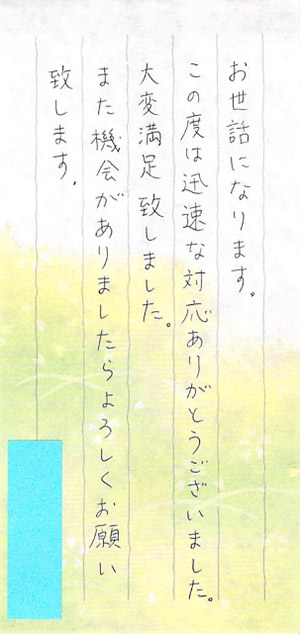 お世話になります。
この度は迅速な対応ありがとうございました。
大変満足致しました。
また機会がありましたらよろしくお願い
致します。